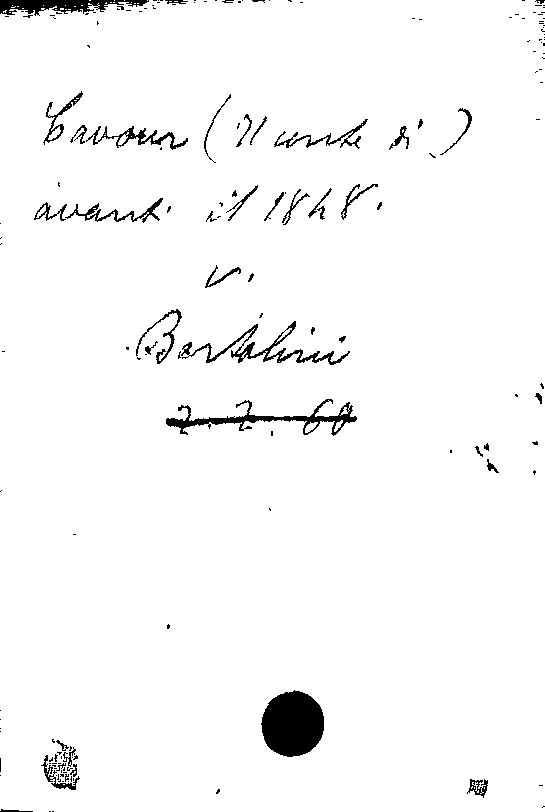 Cavour (Il conte di)
avanti il 1848.
v.
Bartolini
Z. Z. 60